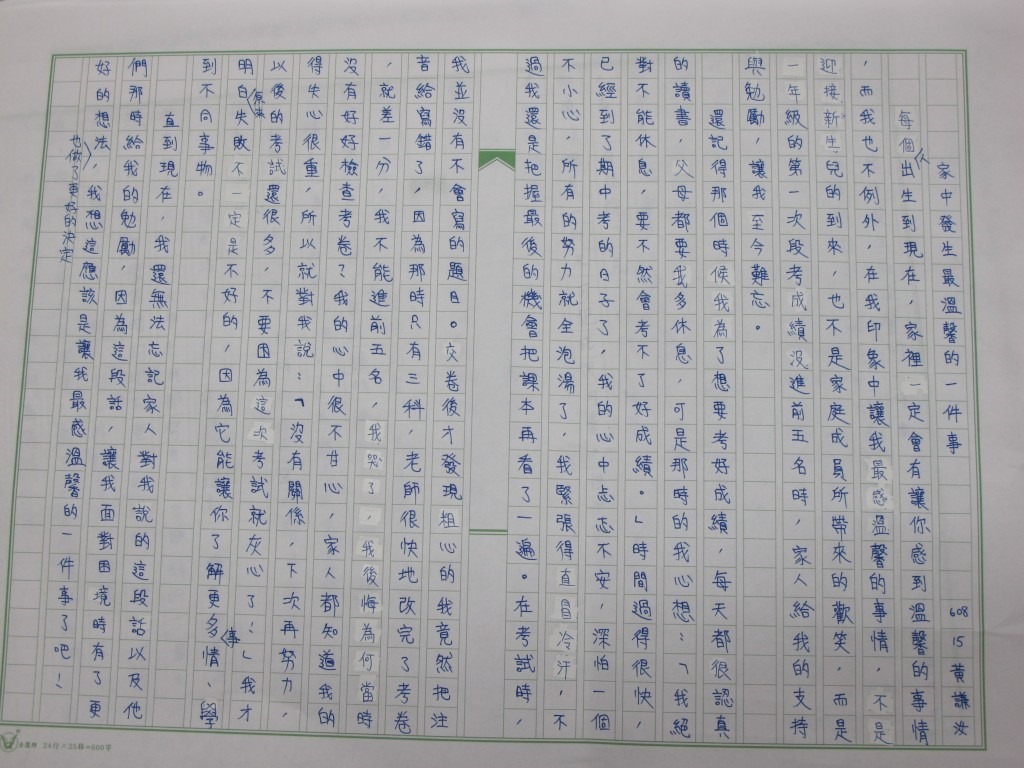 家中發生最溫馨的一件事 608 15 黃謙汝
每個人出生到現在，家裡一定會有讓你感到溫馨的事情
，而我也不例外，在我印象中讓我最感溫馨的事情，不是
迎接新生兒的到來，也不是家庭成員所帶來的歡笑，而是
一年級的第一次段考成績沒進前五名時，家人給我的支持
與勉勵，讓我至今難忘。
還記得那個時候我為了想要考好成績，每天都很認真
的讀書，父母都要我多休息，可是那時的我心想：「我絕
對不能休息，要不然會考不了好成績。」時間過得很快，
已經到了期中考的日子了，我的心中忐忑不安，深怕一個
不小心，所有的努力就全泡湯了，我緊張得直冒冷汗，不
過我還是把握最後的機會把課本再看了一遍。在考試時，
我並沒有不會寫的題目。交卷後才發現粗心的我竟然把注
音給寫錯了，因為那時只有三科，老師很快地改完了考卷
，就差一分，我不能進前五名，我哭了，我後悔為何當時
沒有好好檢查考卷？我的心中很不甘心，家人都知道我的
得失心很重，所以就對我說：「沒有關係，下次再努力，
以後的考試還很多，不要因為這次考試就灰心了！」我才
明白原來失敗不一定是不好的，因為它能讓你了解更多事情、學
到不同事物。
直到現在，我還無法忘記家人對我說的這段話以及他
們那時給我的勉勵，因為這段話，讓我面對困境時有了更
好的想法，也做了更好的決定，我想這應該是讓我最感溫馨的一件事了吧！
24行×25格=600字